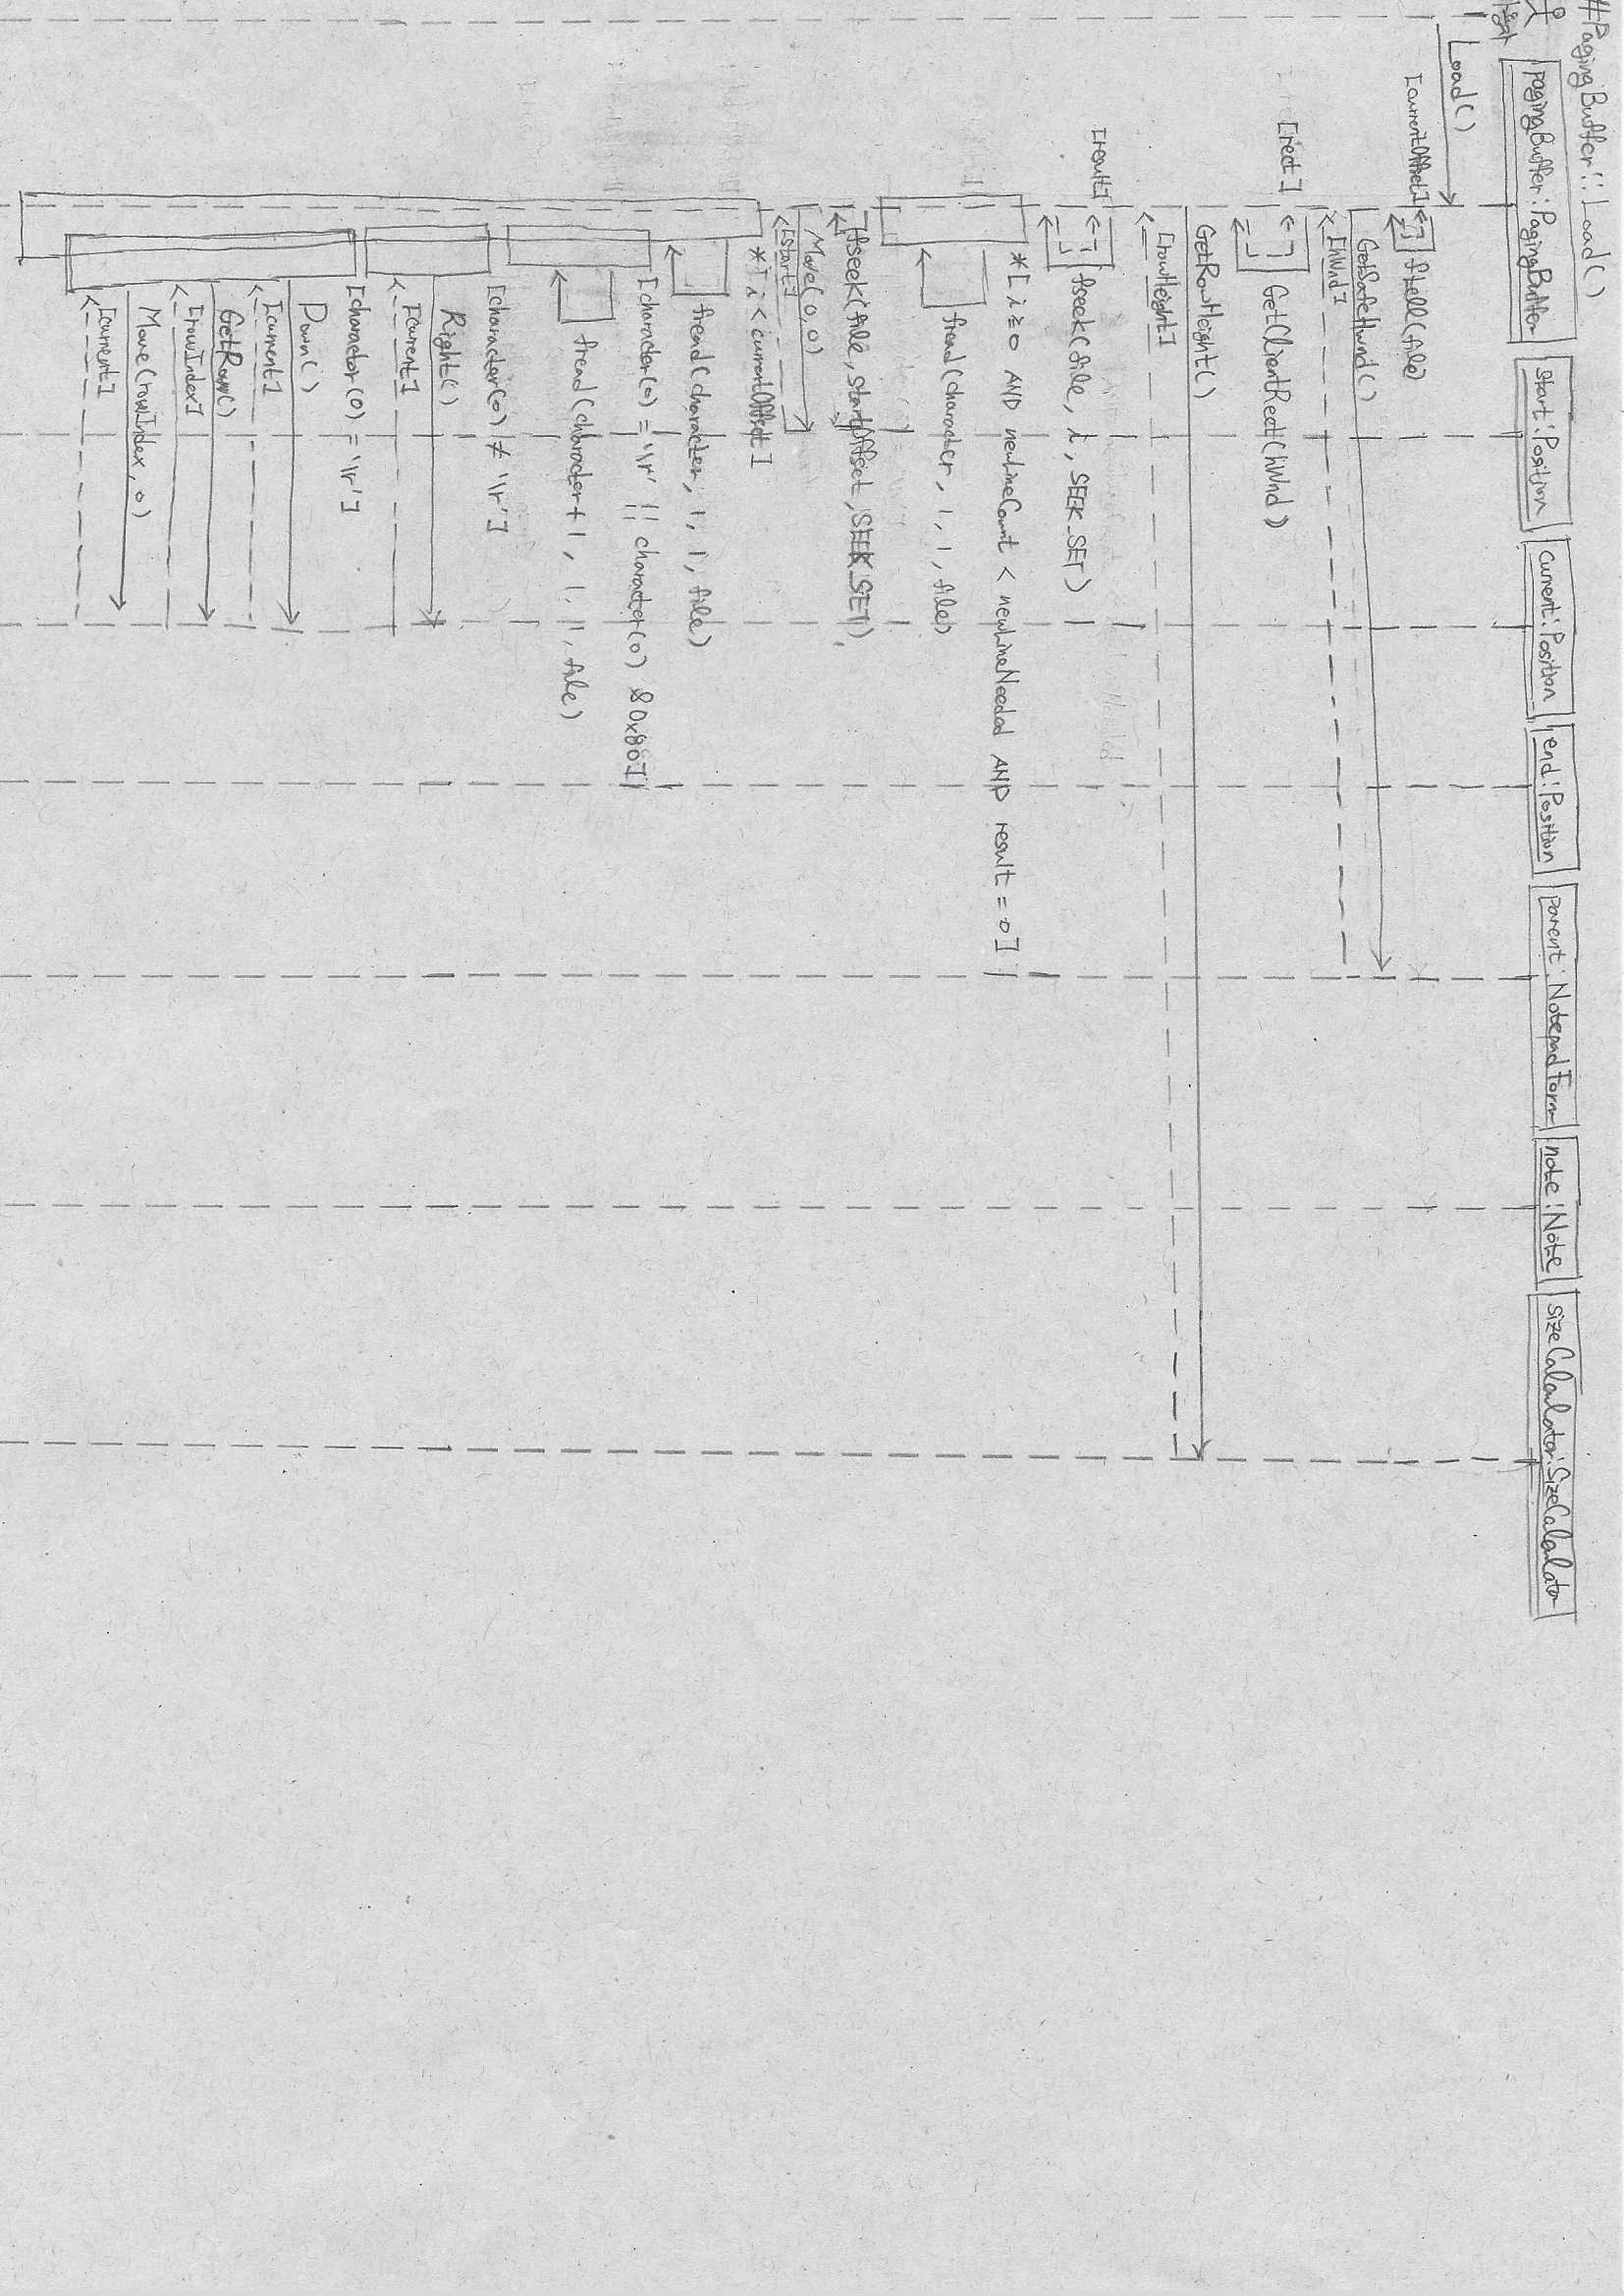 #PagingBuffer::Load()
pagingBuffer:PagingBuffer
start:Position
current:Position
end:Position
parent:NotepadForm
note:Note
sizeCalculator:SizeCalculator
Load()
[currentOffset]
ftell(file)
GetSafeHwnd()
[hWnd]
[rect]
GetClientRect(hWnd)
GetRowHeight()
[rowHeight]
[result]
fseek(file, i, SEEK_SET)
*[i≥0 AND newLineCount < newLineNeeded AND result = 0]
fread(character, 1, 1, file)
fseek(file, startOffset, SEEK_SET)
Move(0,0)
[start]
*[i < currentOffset]
fread(character, 1, 1, file)
[character(0) = '\r' || character(0) & 0x80]
fread(character+1, 1, 1, file)
[character(0) ≠ '\r']
Right()
[current]
[charactor(0) = '\r']
Down()
[current]
GetRow()
[rowIndex]
Move(rowIndex, 0)
[current]